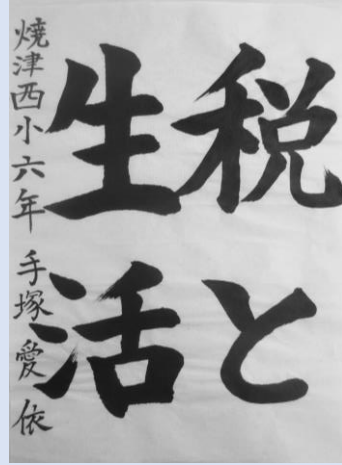 税と
生活
焼津西小六年 手塚愛依